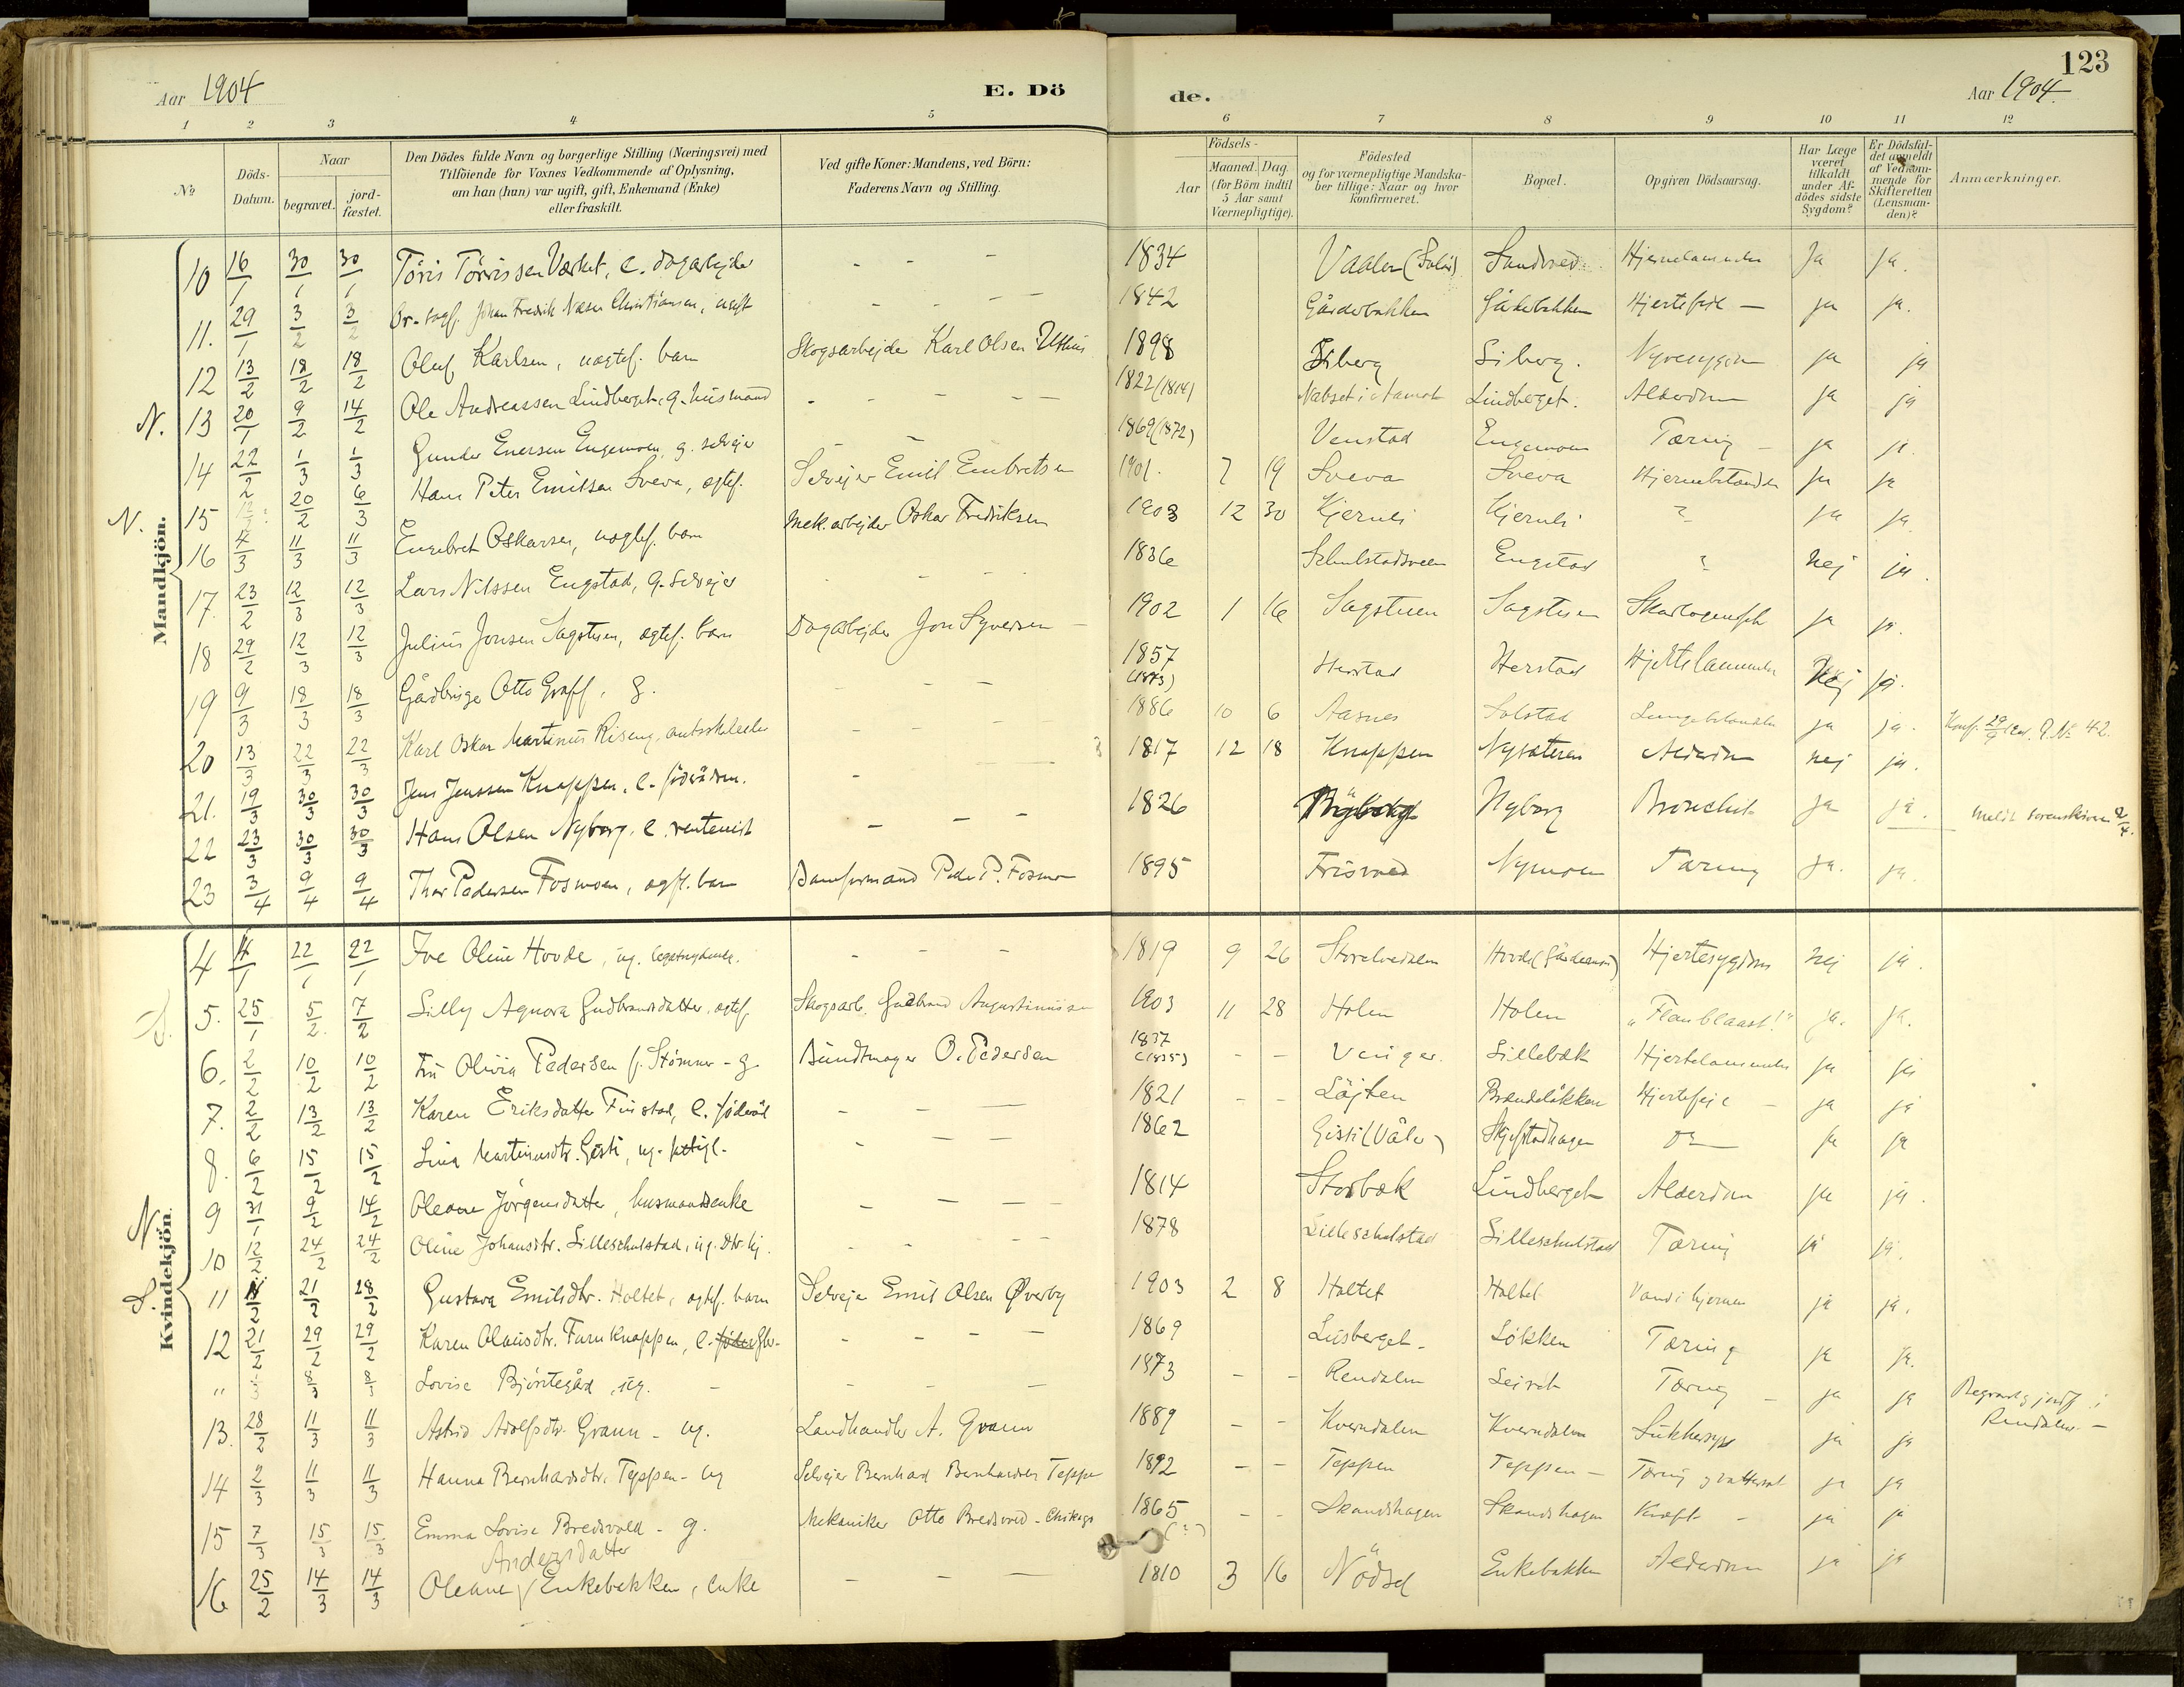 123
Aar 1904 E. Döde. Aar 1904.
1 2 3 4 5 6 7 8 9 10 11 12
No
Döds-Datum.
Naar
begravet.
jord-fæstet.
Den Dödes fulde Navn og borgerlige Stilling (Næringsvei) med
Tilföiende for Voxnes Vedkommende af Oplysning,
om han (hun) var ugift, gift, Enkemand (Enke)
eller fraskilt.
Ved gifte Koner: Mandens, ved Börn:
Faderens Navn og Stilling.
Födsels-
Aar
Maaned. Dag.
(for Börn indtil
5 Aar samt
Værnepligtige).
Födested
og for værnepligtige Mandska-
ber tillige: Naar og hvor
konfirmeret.
Bopæl.
Opgiven Dödsaarsag.
Har Læge
været
tilkaldt
under Af-
dödes sidste
Sygdom?
Er Dödsfal-
det anmeldt
af Vedkom-
mende for
Skifteretten
(Lensman-
den)?
Anmærkninger.
Mandkjön.
10 16/1 30/1 30/1 Töris Törrissen Værket, e. dagarbejder - - - 1834 Vaaler (Solör) Sandvød Hjernelammelse Ja ja.
11. 29/1 3/2 3/2 Johan Fredrik Næser Christiansen, ugift - - - - 1842 Gårderbakken Gårderbakken Hjertefejl - ja ja.
12 13/2 18/2 18/2 Oluf Karlsen, uægtef. barn Skogsarbejder Karl Olsen 1898 Siberg Siberg. Nyresygdom ja ja
N. 13 20/1 9/2 14/2 Ole Andreassen Lindberget, g. husmand - - - - 1822 (1814) Lindberget. Alderdom ja ja
14 22/2 1/3 1/3 Gunder Enersen Engemoen, g. selvejer - - 1869 (1872) Venstad Engemoen Tæring - ja ja.
N. 15 20/2 6/3 Hans Peter Emilsen Sveva, ægtef. Selvejer Emil Embretsen 1901. 7 19 Sveva Sveva Hjernebetændelse ja ja
16 4/3 11/3 11/3 Engebret Oskarsen, uægtef. barn Mek. arbejder Oskar Fredriksen 1903 12 30 Kjernli Kjernli ? ja ja.
17. 23/2 12/3 12/3 Lars Nilssen Engstad, g. Selvejer - - - 1836 Schulstadsveen Engstad ? nej ja.
18 29/2 12/3 12/3 Julius Jonsen Sagstuen, ægtef. barn Dagarbejder Jon Syversen - 1902 1 16 Sagstuen Sagstuen Skarlagensfeber ja ja.
19 9/3 18/3 18/3 Gårdbruger Otto Graff, g. - - - 1857 (1873) Herstad Herstad Hjertelammelse Nej ja.
20 13/3 22/3 22/3 Karl Oskar Martinus Riseng, - - 1886 10 6 Aasnes Solstad Lungebetændelse ja ja. Konf. 29/9 1901. No 42.
21. 19/3 30/3 30/3 Jens Jenssen Knappen, e. föderådsm. - 1817 12 18 Knappen Nysæteren Alderdom nej ja.
22 23/3 30/3 30/3 Hans Olsen Nyborg, e. rentenist - - - 1826 Nyborg Bronchit ja ja. Meldt sorenskriveren 2/4.
23 3/4 9/4 9/4 Thor Pedersen Fosmoen, ægtf. barn Damformand Peder P. Fosmo 1895 Frisvold Nymoen Tæring ja. ja.
Kvindekjön.
4 22/1 22/1 Ive Oline Hovde, ug. - - - 1819 9 26 Storelvedalen Hovde (Gårdermoen) Hjertesygdom nej ja.
S. 5. 25/1 5/2 7/2 Lilly Agnora Gudbrandsdatter, ægtef. Skogsarb. Gudbrand Augustinussen 1903 11 28 Holen Holen "Flaublaast!" ja. ja.
6. 2/2 10/2 10/2 Fru Olivia Pedersen f. Stömner - g. Buntmager O. Pedersen 1837 (1835) - - Venger Lillebæk Hjertelammelse ja ja
7. 2/2 13/2 13/2 Karen Eriksdatter Finstad, e. föderåd - - - 1821 - - Löjten Brændelökken Hjertefejl - ja ja
8. 6/2 15/2 15/2 Lina Martinusdtr. Gisti, ug. - - - 1862 Gisti (Våler) Skjefstadhagen Do ja ja
N. 9 31/1 9/2 14/2 Oleane Jörgensdatter, husmandsenke - - - 1814 Storbæk Lindberget Alderdom ja ja.
10 12/2 24/2 24/2 Oline Johansdtr. Lilleschulstad, ug. - - - - 1878 Lilleschulstad Lilleschulstad Tæring ja ja.
S. 11 21/2 28/2 Gustava Emilsdtr. Holtet, ægtef. barn Selvejer Emil Olsen Øverby 1903 2 8 Holtet Holtet Vand i hjernen ja ja.
12 21/2 29/2 29/2 Karen Olausdtr. Furuknappen, e. - - - - 1869 Lusberget - Lökken Tæring ja ja.
" 8/3 8/3 Lovise Björstegård, ug. - - - - - 1873 - - Rendalen Leiret Tæring - ja ja Begravet og jordf. i Rendalen. -
13. 28/2 11/3 11/3 Astrid Adolfsdtr. Grann - ug. Landhandler A. Grann 1889 - - Kverndalen Kverndalen Sukkersyge ja ja
14 2/3 11/3 11/3 Hanna Bernhardsdtr. Teppen - ug Selvejer Bernhard Bernhardsen Teppen 1892 - - Teppen Teppen - Tæring ja ja
15 7/3 15/3 15/3 Emma Lovise Bredsvold - g. Mekaniker Otto Bredsvold - Chikago 1865 (?) - - Skandshagen Skandshagen Kræft - ja ja
Andersdatter
16 25/2 14/3 14/3 Oleane Enkebakken, enke - - - 1810 3 16 Nödsel Enkebakken Alderdom ja ja